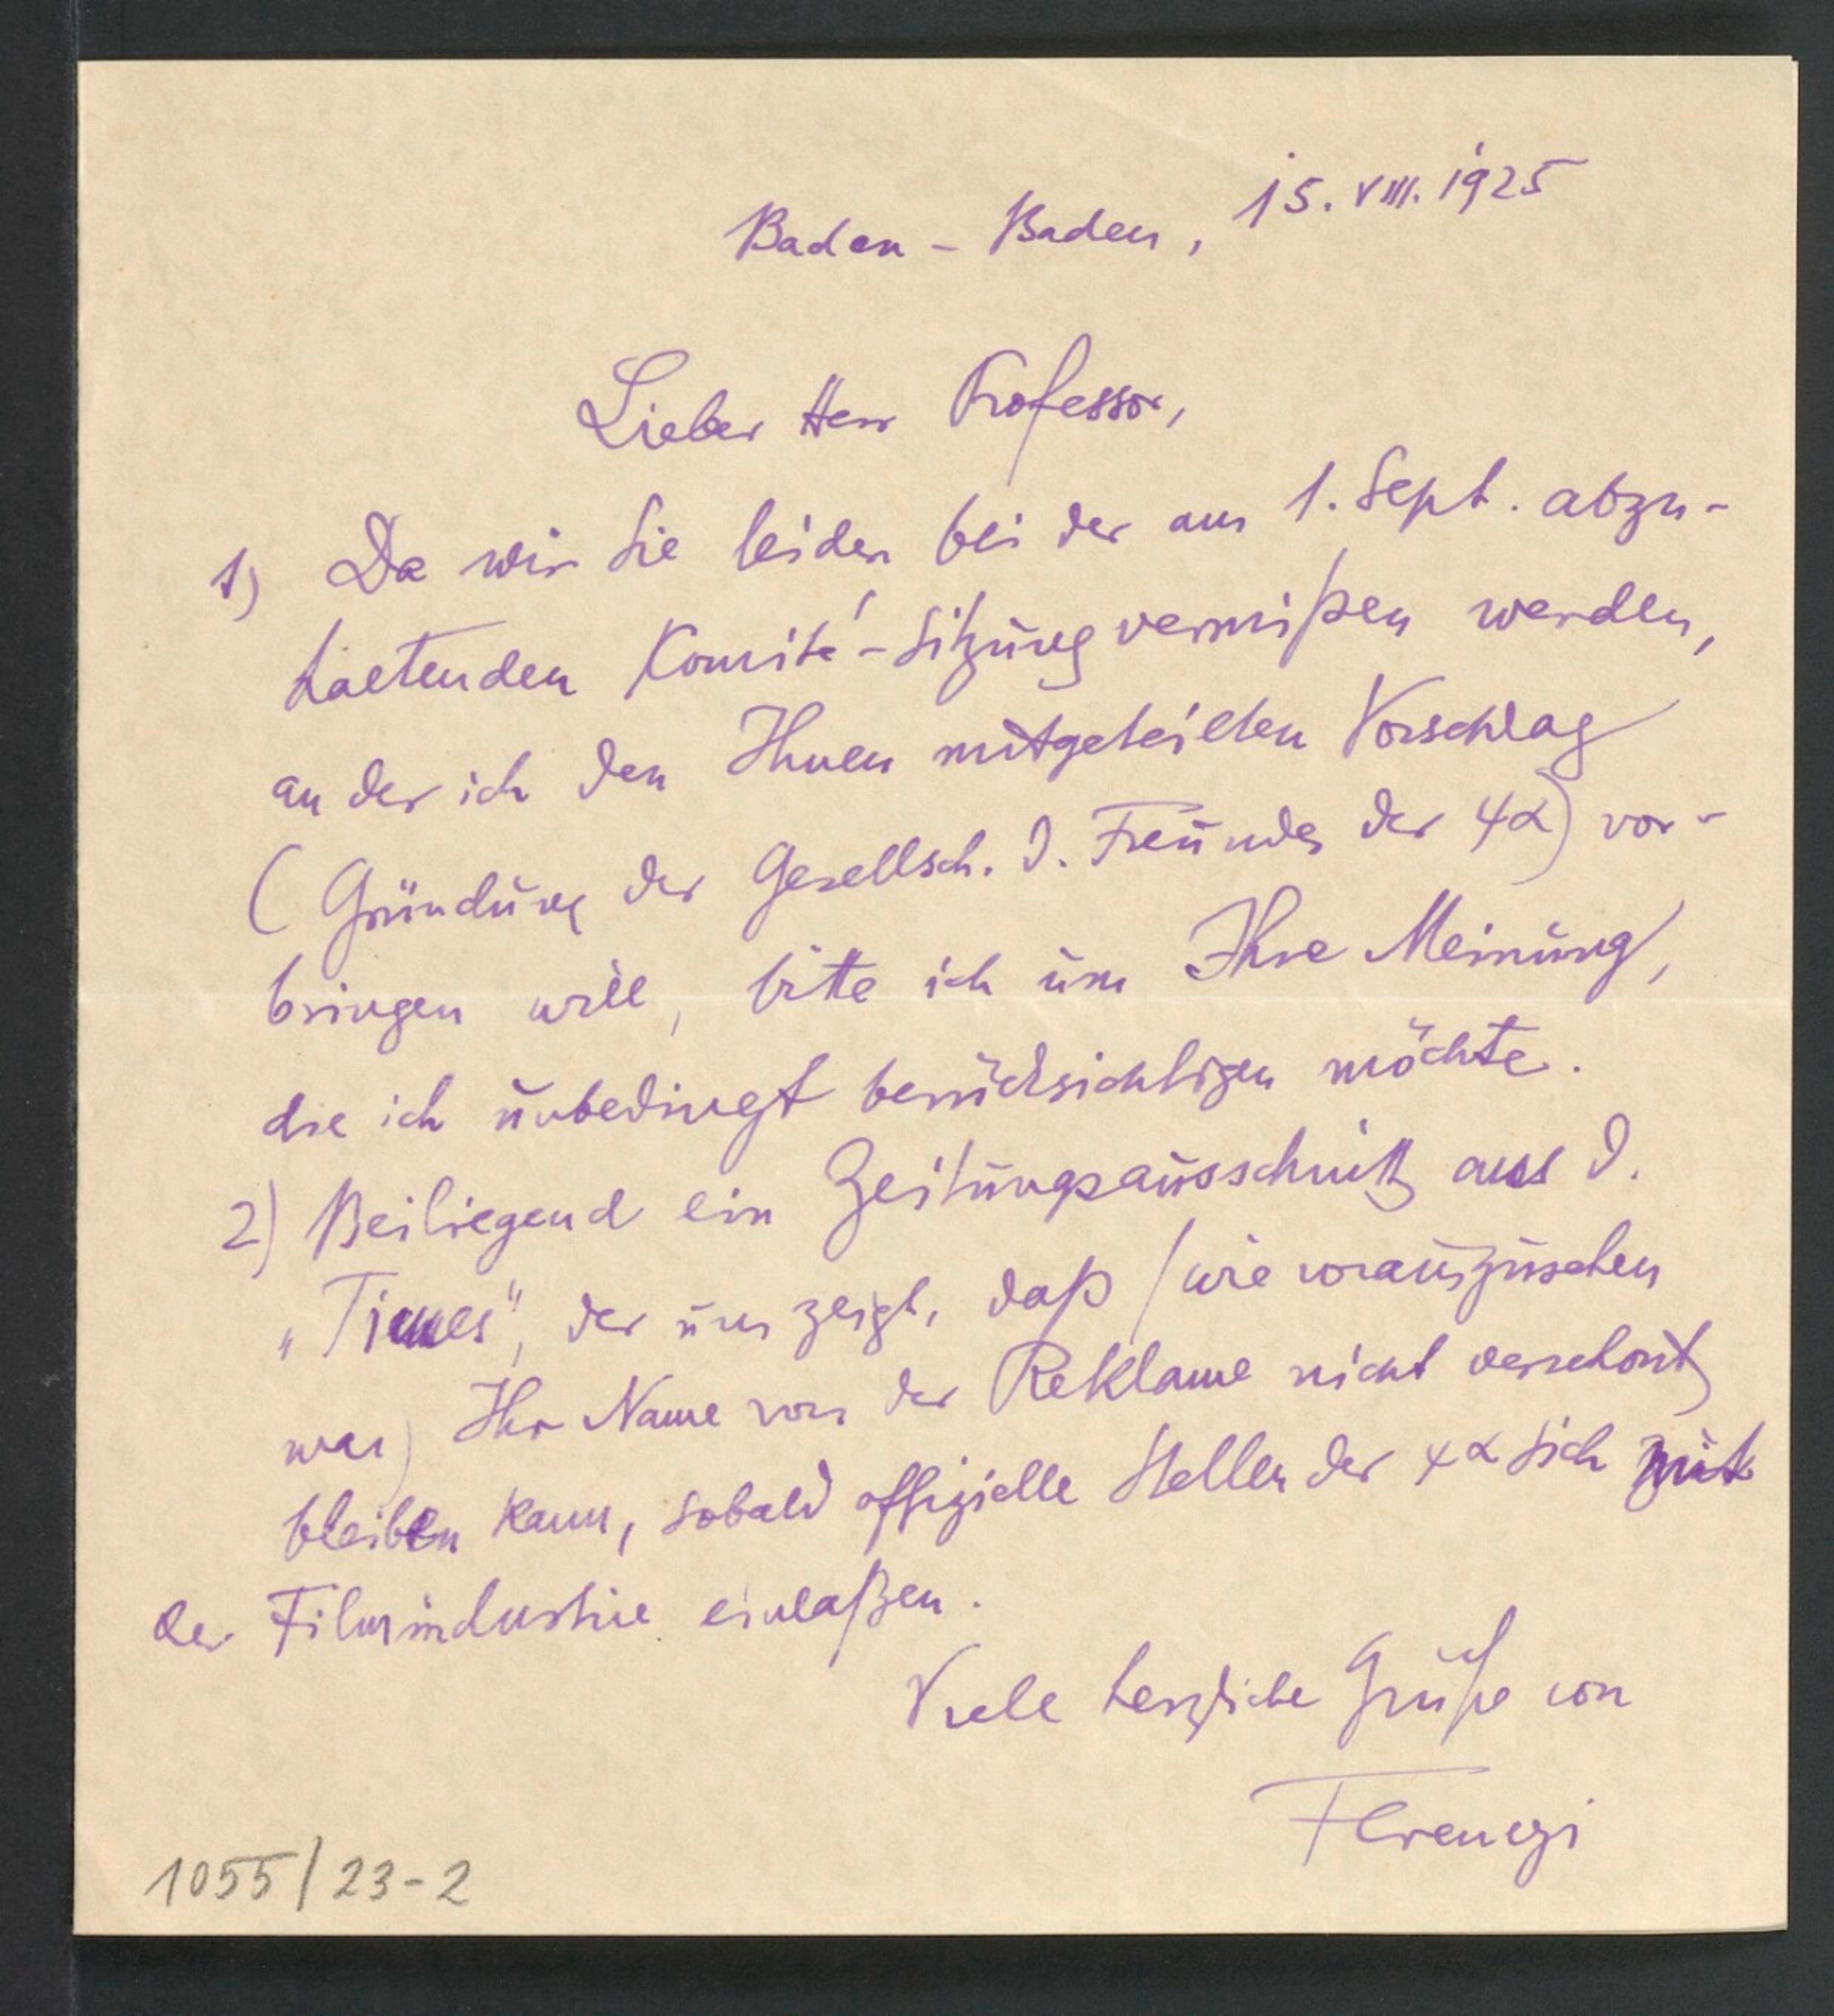 Baden - Baden, 15. VIII. 1925
Lieber Herr Professor,
1) Da wir Sie leider bei der am 1. Sept. abzu-
haltenden Komité-Sitzung vermißen werden,
an der ich den Ihnen mitgeteilten Vorschlag
(Gründung der Gesellsch. d. Freunde der ψα) vor-
bringen will, bitte ich um Ihre Meinung,
die ich unbedingt berücksichtigen möchte.
2) Beiliegend ein Zeitungsausschnitt aus d.
„Times", der uns zeigt, daß (wie vorauszusehen
war) Ihr Name von der Reklame nicht verschont
bleiben kann, sobald offizielle Stellen der ψα sich mit
der Filmindustrie einlaßen.
Viele herzliche Grüße von
Ferenczi
1055/23-2